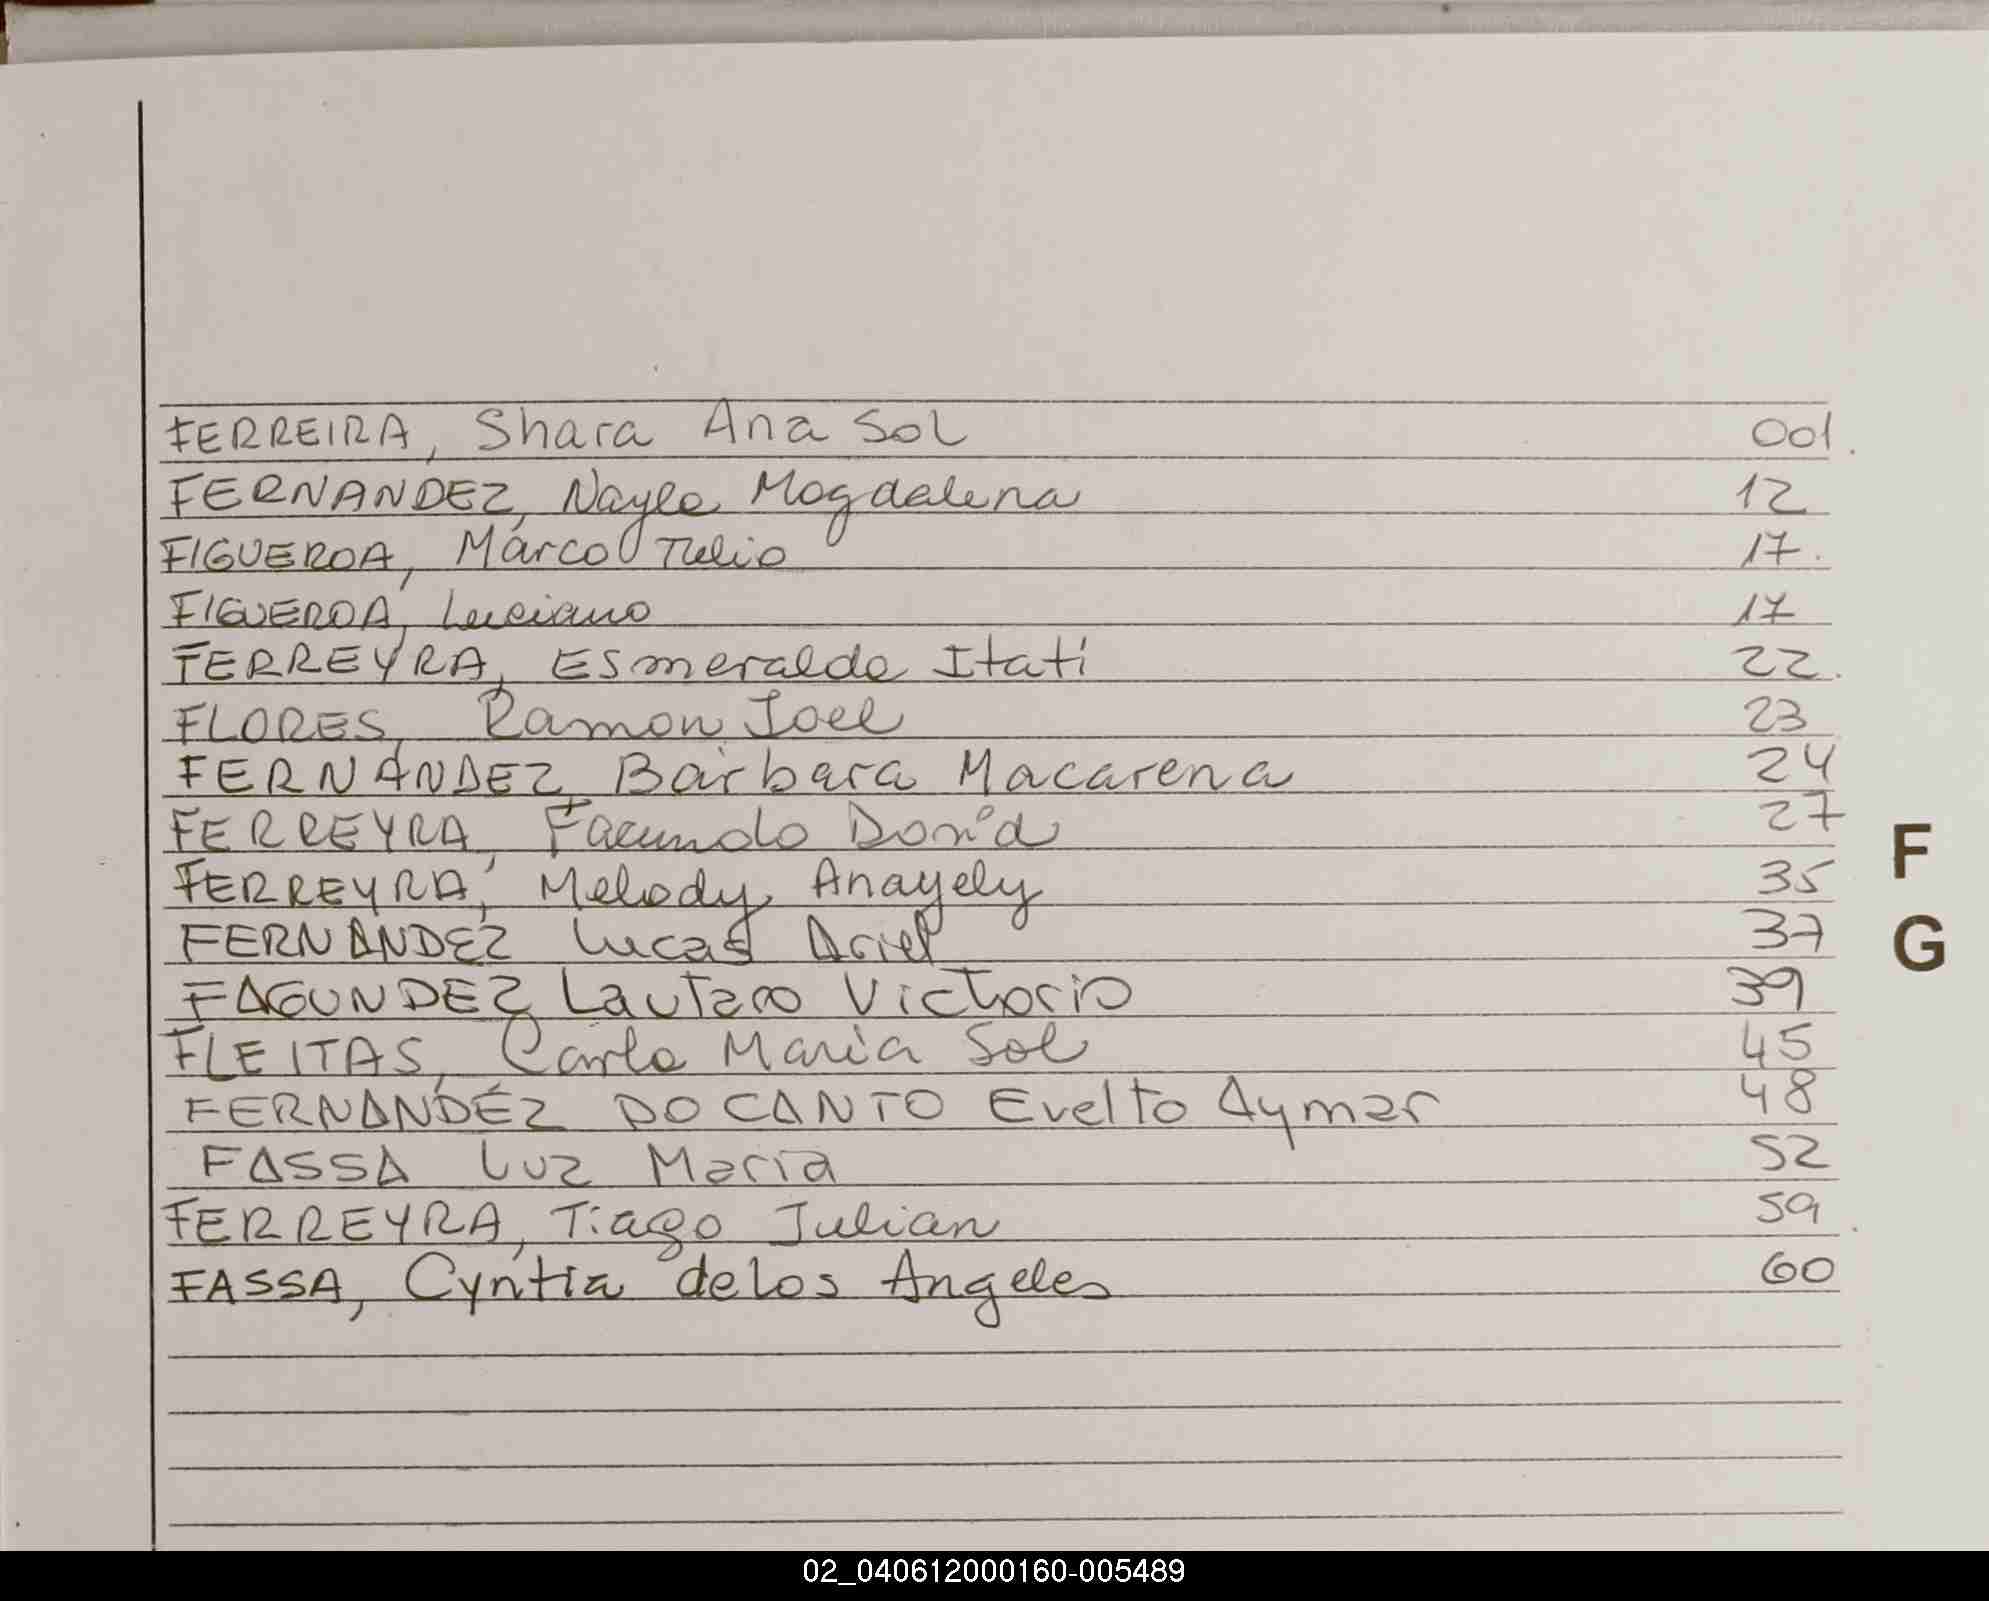 FERREIRA, Shara Ana Sol 001.
FERNANDEZ, Nayle Magdalena 12
FIGUEROA, Marco Tulio 17.
FIGUEROA, Luciano 17
FERREYRA, Esmeralda Itati 22.
FLORES, Ramon Joel 23
FERNÁNDEZ, Barbara Macarena 24
FERREYRA, Facundo 27
FERREYRA, Melody Anayely 35
FERNANDEZ Lucas Ariel 37
FAGUNDEZ Lautaro Victorio 39
FLEITAS, Carla Maria Sol 45
FERNANDÉZ DO CANTO Evelto Aymar 48
FASSA Luz Maria 52
FERREYRA, Tiago Julian 59
FASSA, Cyntia de los Angeles 60
F
G
02_040612000160-005489